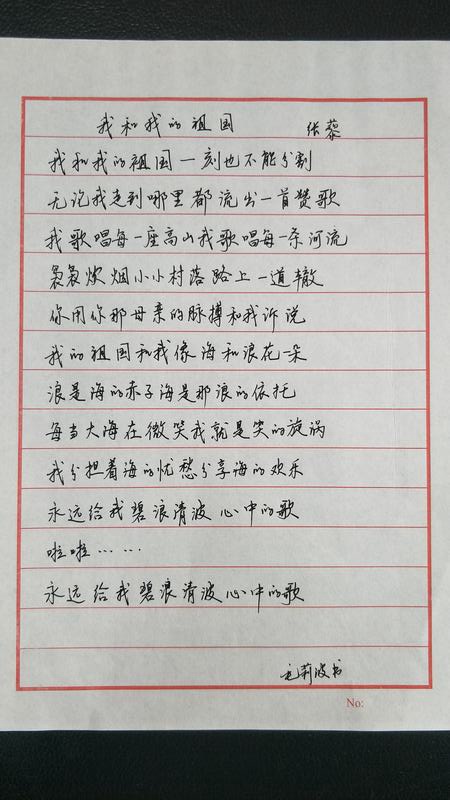 我和我的祖国 张藜
我和我的祖国一刻也不能分割
无论我走到哪里都流出一首赞歌
我歌唱每一座高山我歌唱每一条河流
袅袅炊烟小小村落路上一道辙
你用你那母亲的脉搏和我诉说
我的祖国和我像海和浪花一朵
浪是海的赤子海是那浪的依托
每当大海在微笑我就是笑的旋涡
我分担着海的忧愁分享海的欢乐
永远给我碧浪清波心中的歌
啦啦……
永远给我碧浪清波心中的歌
毛莉波书
No: